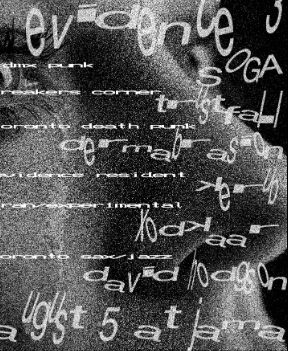 evidence 3
SOGA
dmx punk
reakers corner
trustfall
oronto death punk
dermabrasion
vidence resident
ran/experimental
oronto sax/jazz
david hodgson
august 5 at jama